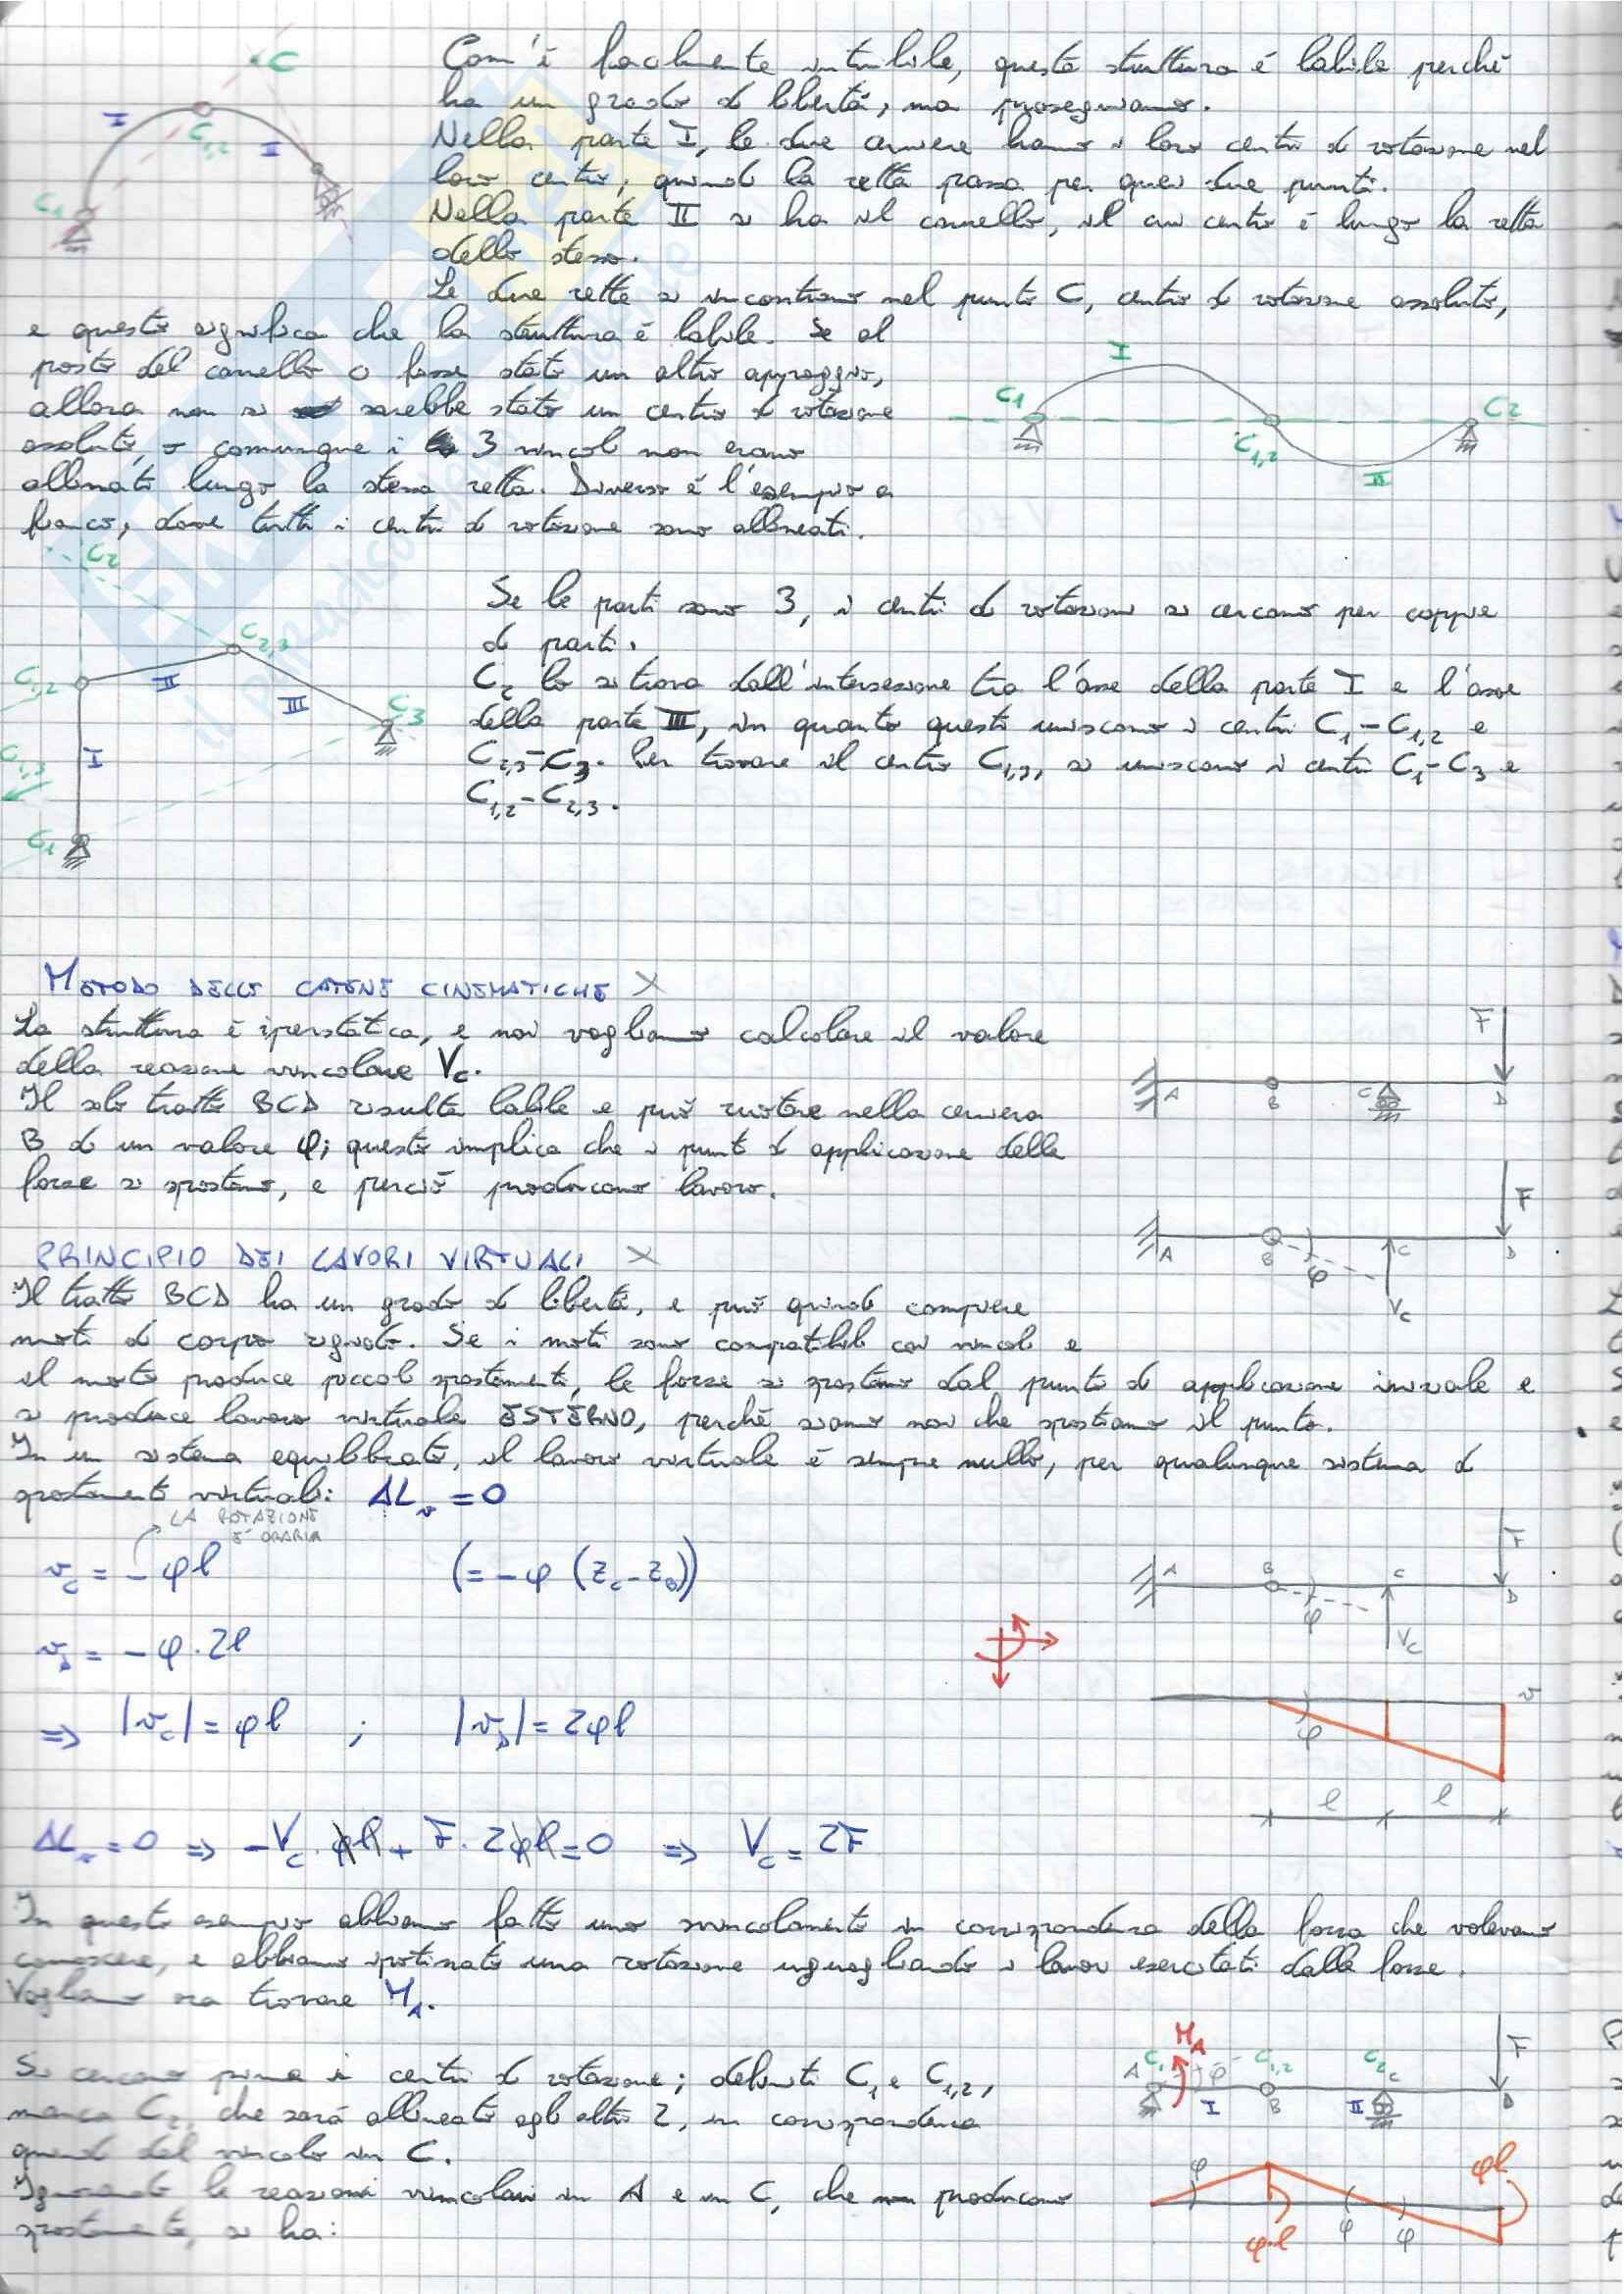 Com'è facilmente intuibile, questa struttura è labile perché
ha un grado di libertà, ma proseguiamo.
Nella parte I, le due cerniere hanno i loro centri di rotazione nel
loro centro, quindi la retta passa per quei due punti.
Nella parte II si ha il carrello, il cui centro è lungo la retta
dello stesso.
Le due rette si incontrano nel punto C, centro di rotazione assoluto,
e questo significa che la struttura è labile. Se al
posto del carrello ci fosse stato un altro appoggio,
allora non si sarebbe stato un centro di rotazione
assoluto, o comunque i 3 vincoli non erano
allineati lungo la stessa retta. Diverso è l'esempio a
fianco, dove tutti i centri di rotazione sono allineati.
C
I
C1,2
I
C1
I
C1
C1,2
C2
II
Se le parti sono 3, i centri di rotazione si cercano per coppie
di parti.
C2 lo si trova dall'intersezione tra l'asse della parte I e l'asse
della parte III, in quanto questi uniscono i centri C1-C1,2 e
C2,3-C3. Per trovare il centro C1,3, si uniscono i centri C1-C3 e
C1,2-C2,3.
C2
C2,3
C1,2
II
III
C3
I
C1,3
C1
METODO DELLE CATENE CINEMATICHE X
La struttura è iperstatica, e noi vogliamo calcolare il valore
della reazione vincolare Vc.
Il solo tratto BCD risulta labile e può ruotare nella cerniera
B di un valore φ; questo implica che i punti di applicazione delle
forze si spostano, e perciò producano lavoro.
F
A B C D
F
A B φ C D
Vc
PRINCIPIO DEI LAVORI VIRTUALI X
Il tratto BCD ha un grado di libertà, e può quindi compiere
moti di corpo rigido. Se i moti sono compatibili coi vincoli e
il moto produce piccoli spostamenti, le forze si spostano dal punto di applicazione iniziale e
si produce lavoro virtuale ESTERNO, perché siamo noi che spostiamo il punto.
In un sistema equilibrato, il lavoro virtuale è sempre nullo, per qualunque sistema di
spostamenti virtuali: ΔLv = 0
LA ROTAZIONE
È ORARIA
vc = -φl (= -φ (zc - zB))
vD = -φ·2l
⇒ |vc| = φl ; |vD| = 2φl
F
A B φ C D
Vc
v
φ
l l
ΔLv = 0 ⇒ -Vc·φl + F·2φl = 0 ⇒ Vc = 2F
In questo esempio abbiamo fatto uno svincolamento in corrispondenza della forza che volevamo
conoscere, e abbiamo ipotizzato una rotazione uguagliando i lavori esercitati dalle forze.
Vogliamo ora trovare MA.
Si cercano prima i centri di rotazione; definiti C1 e C1,2,
manca C2, che sarà allineato agli altri 2, in corrispondenza
quindi del vincolo in C.
Ignorando le reazioni vincolari in A e in C, che non producono
spostamento, si ha:
MA
F
C1 C1,2 C2
A φ C
I B II D
φ φl
φ φ
φ·l